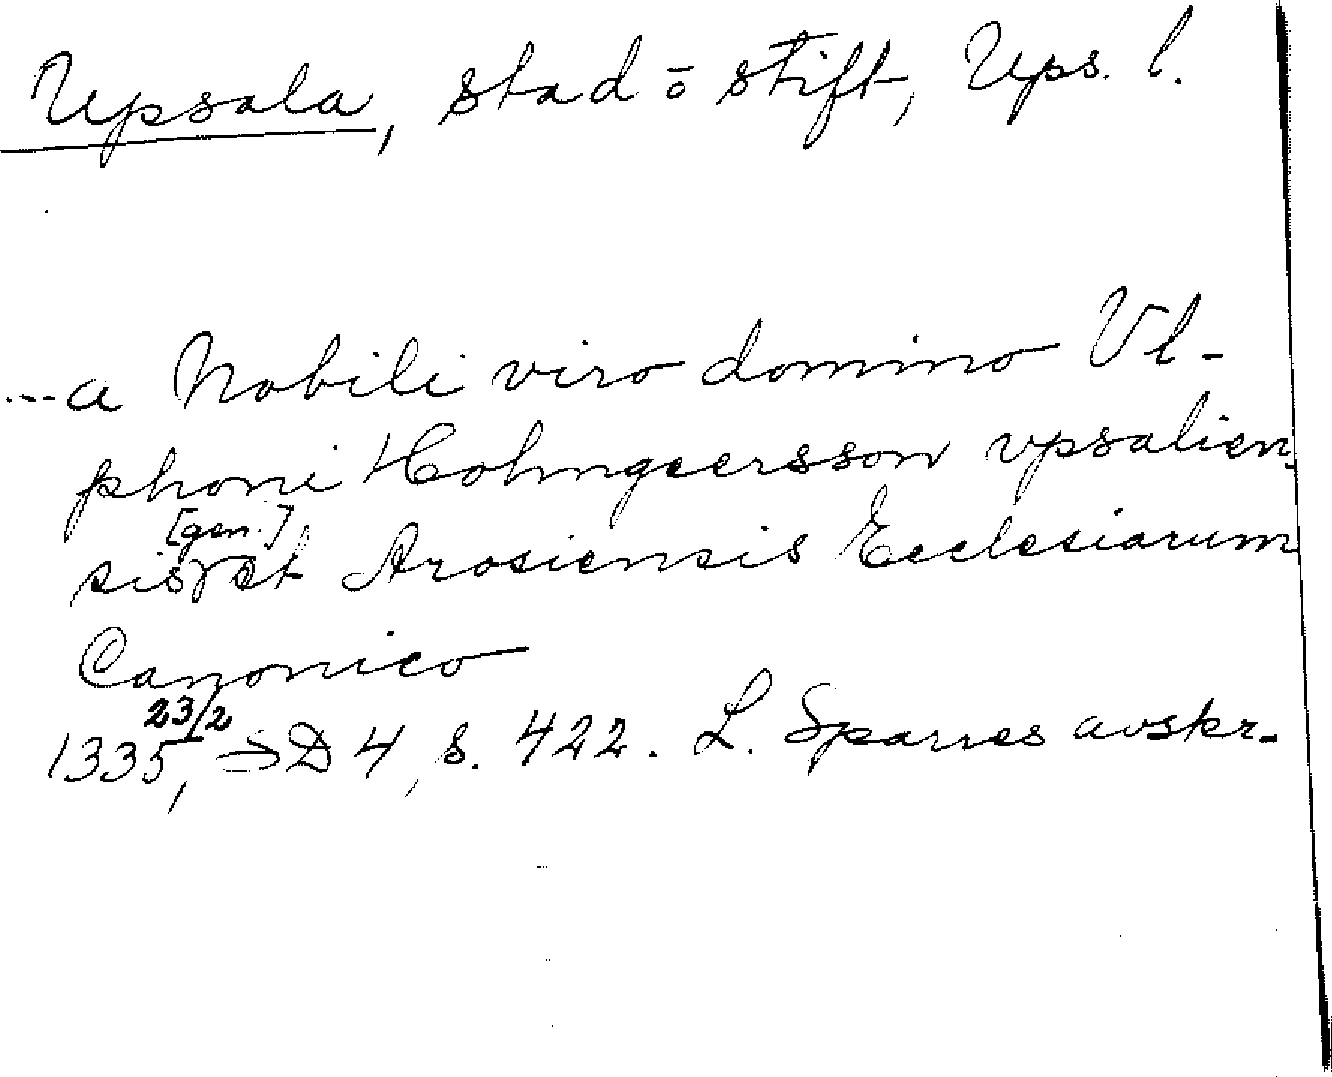 Upsala, stad o stift, Ups. l.
...a Nobili viro domino Vl-
phoni Holmgeersson vpsalien-
sis [gen.] et Arosiensis Ecclesiarum
Canonico
1335 23/2, SD 4, s. 422. L. Sparres avskr.